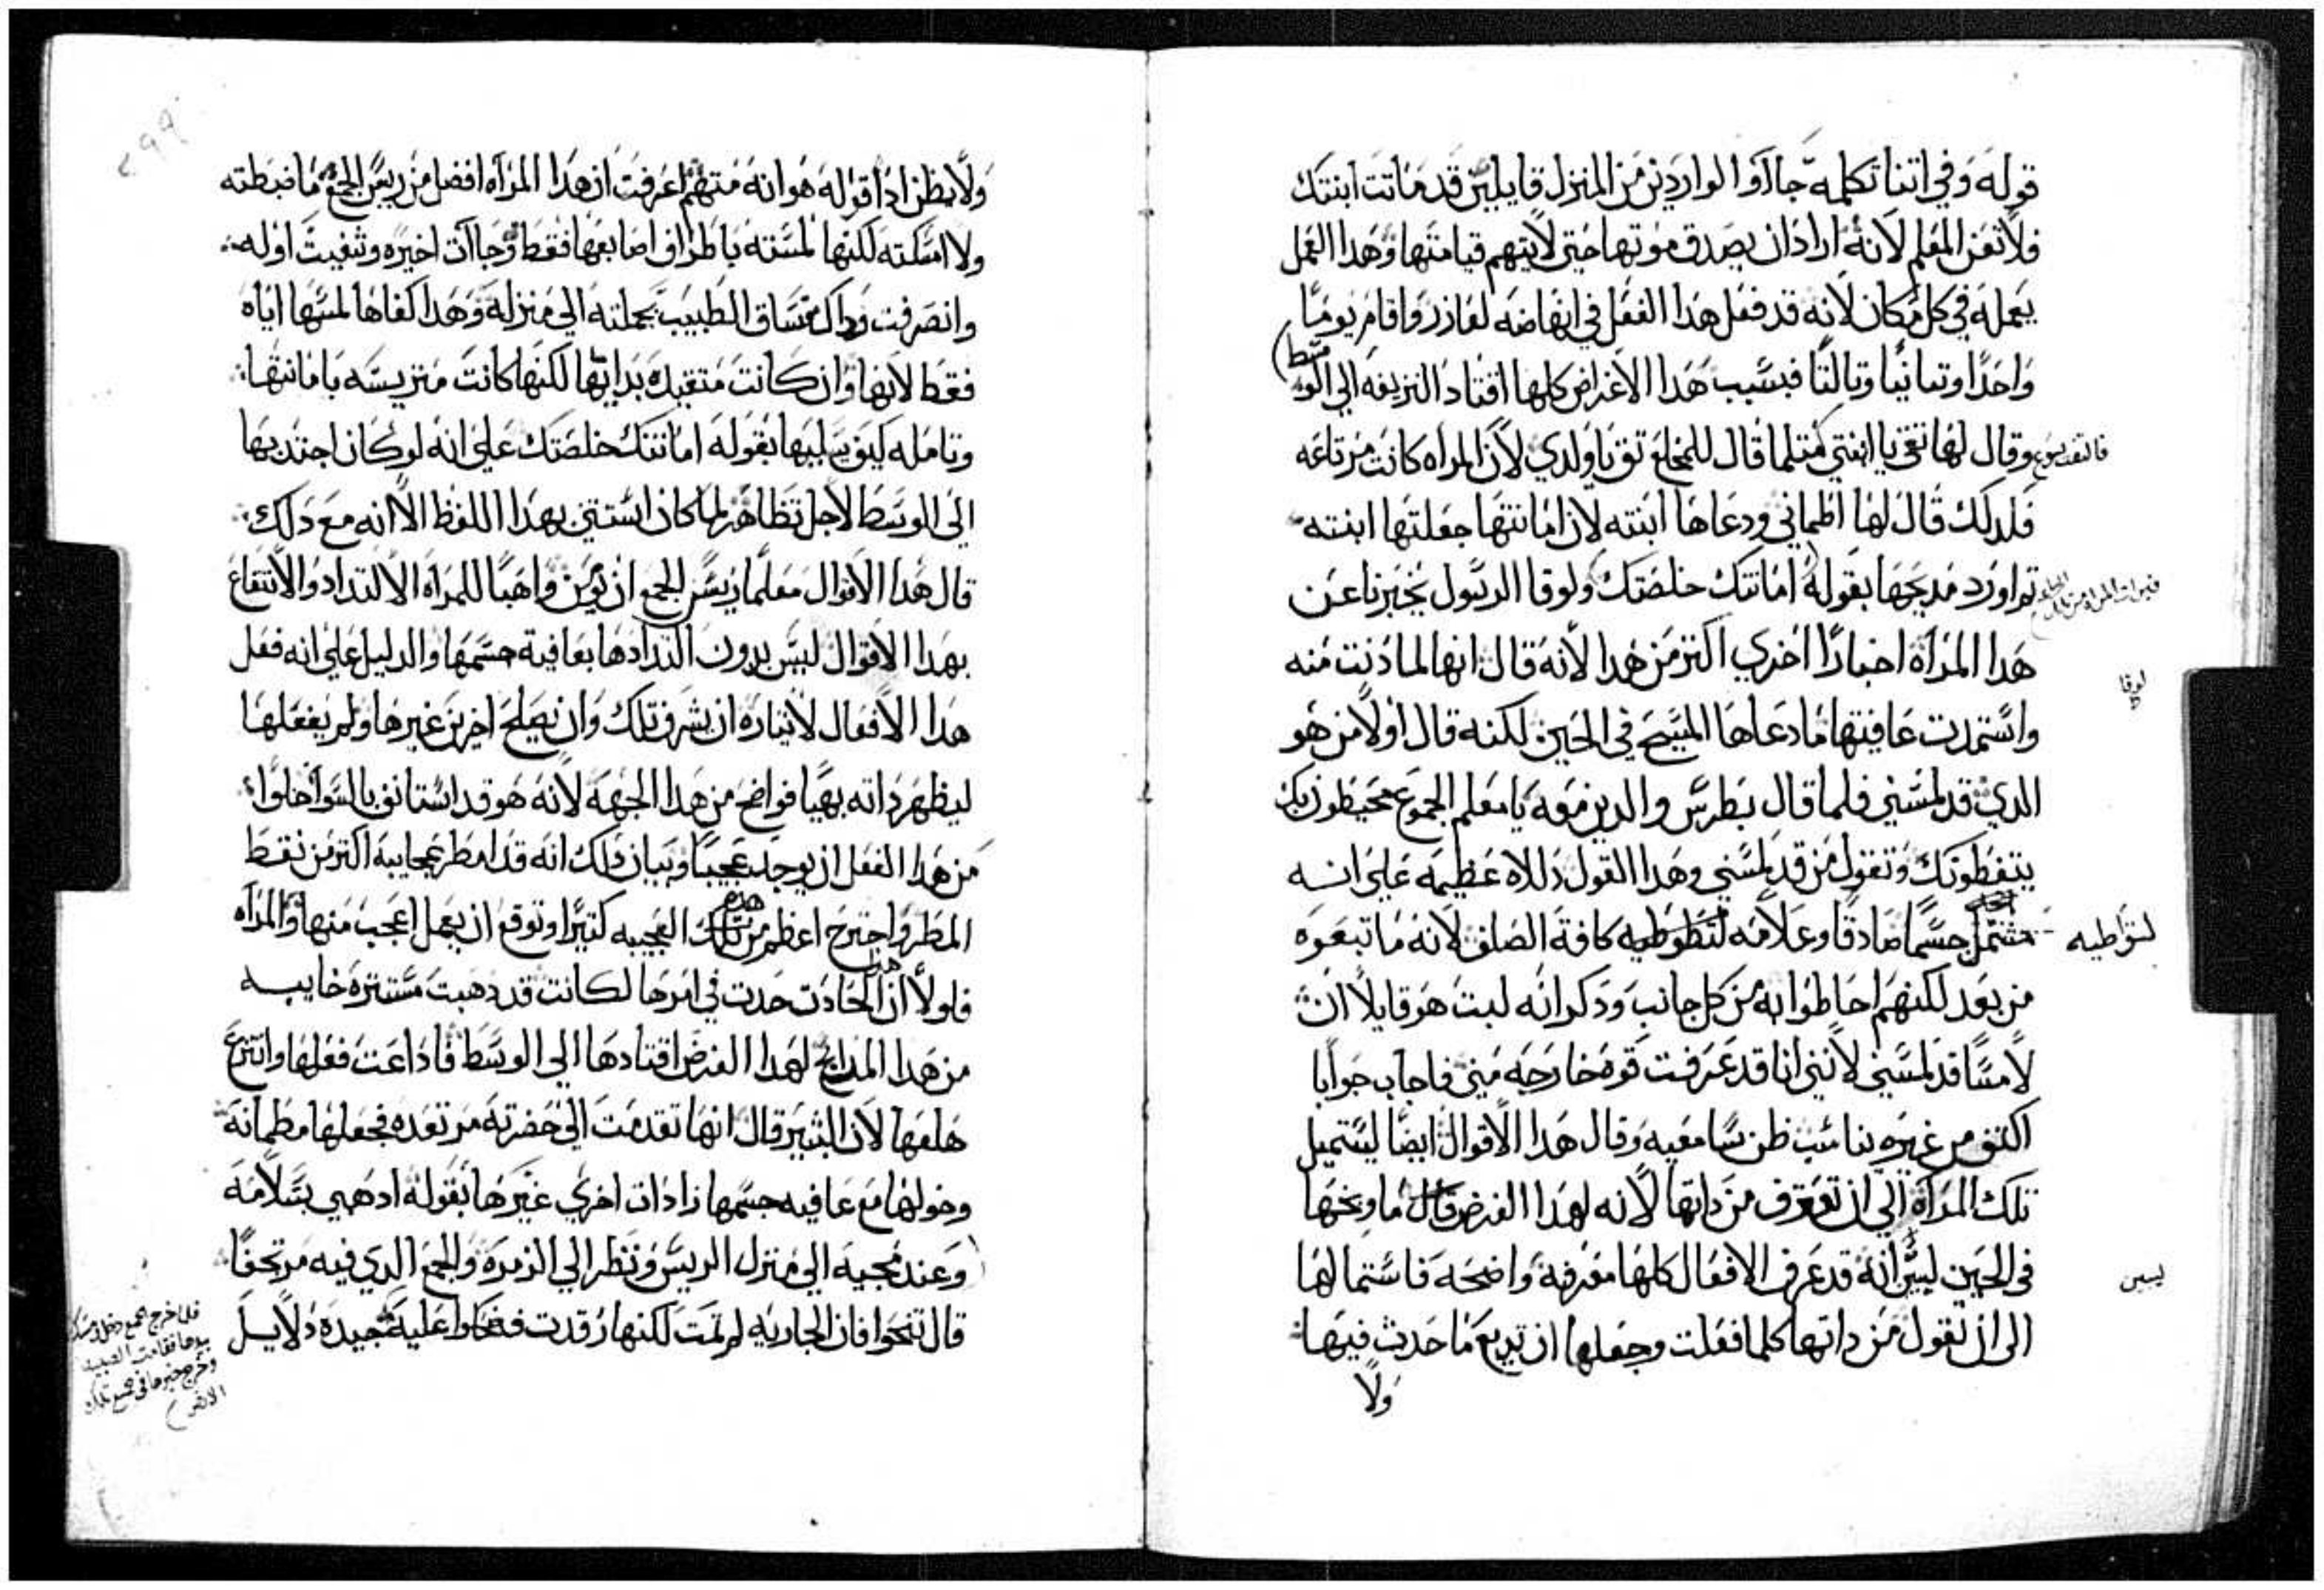 قوله وفي اتنا تكلمه جاآوا الواردين من المنزل قايلين قد ماتت ابنتك
فلا تعن المعلم لانه اراد ان يصدق موتها حتي لا يتهم قيامتها وهدا العمل
يعمله في كل مكان لانه قد فعل هدا الفعل في انهاضه لعازر واقام يومًا
واحدًا وتانيًا وتالتًا فبسبب هدا الاغراض كلها اقتاد النزيفه الي الوسط
فالتفت يسوع وقال لها تقي يا ابنتي متلما قال للمخلع تق يا ولدي لان المراه كانت مرتاعه
فلدلك قال لها اطماني ودعاها ابنته لان امانتها جعلتها ابنته
تم اورد مديحها بقوله امانتك خلصتك ولوقا الرسول يخبرنا عن
فبرات المراه من تلك
هدا المراة اخبارًا اخري اكتر من هدا لانه قال انها لما دنت منه
لوقا
واستمدت عافيتها ما دعاها المسيح في الحين لكنه قال اولاً من هو
الدي قد لمسني فلما قال بطرس والدين معه يا معلم الجموع محيطون بك
يتضغطونك وتقول من قد لمسني وهدا القول دلاله عظيمه علي انه
مشتمل جسمًا صادقًا وعلامه لتوطيه كافة الصلف لانه ما تبعوه
لتواطيه
من بعد لكنهم احاطوا به من كل جانب ودكر انه لبت هو قايلاً ان
لامسًا قد لمسني لانني انا قد عرفت قوه خارجه مني فاجاب جوابا
اكتف من غيره يناسب ظن سامعيه وقال هدا الاقوال ايضًا ليستميل
تلك المراة الي ان تعترف من داتها لانه لهدا الغرض ما وبخها
في الحين ليبين انه قد عرف الافعال كلها معرفة واضحه فاستمالها
ليبين
الي ان تقول من داتها كلما فعلت وجعلها ان تديع ما حدث فيها
ولا
٢٩٩
ولا يظن ادًا قوله هو انه متهم اعرفت ان هدا المراه افضل من ريس الجمع ما ضبطته
ولا امسكته لكنها لمسته باطراف اصابعها فقط وجاآت اخيره وشفيت اوله
وانصرفت وداك ساق الطبيب بجملته الي منزله وهدا كفاها لمسها اياه
فقط لانها وان كانت متقيده بدايها لكنها كانت متريسه بامانتها
وتامله كيف يسليها بقوله امانتك خلصتك علي انه لو كان اجتدبها
الي الوسط لاجل تظاهر لما كان استتنى بهدا اللفظ الا انه مع دلك
قال هدا الاقوال معلمًا ريس الجمع ان يومن واهبًا للمراه الالتداد والانتفاع
بهدا الاقوال ليس بدون التدادها بعافية جسمها والدليل علي انه فعل
هدا الافعال لايثاره ان يشرف تلك وان يصلح اخرين غيرها ولم يفعلها
ليظهر داته بهيًا فواضح من هدا الجهة لانه هو قد استانف بالسوا خلوًا
من هدا الفعل ان يوجد عجيبًا وبيان دلك انه قد امطر عجايبه اكتر من نقط
المطر واجترح اعظم من هده العجيبه كتيرًا وتوقع ان يعمل اعجب منها والمراه
فلولا ان هدا الحادت حدت في امرها لكانت قد دهبت مستتره خايبه
من هدا المدايح لهدا الغرض اقتادها الي الوسط فاداعت فعلها وانتزع
هلعها لان البشير قال انها تقدمت الي حضرته مرتعده فجعلها مطمانه
وخولها مع عافيه جسمها زادات اخري غيرها بقوله ادهبي بسلامه
وعند مجيه الي منزل الريس ونظر الي الزمرة والجمع الدي فيه مرتجفًا
قال تنحوا فان الجاريه لم تمت لكنها رقدت فضحكوا عليه جيده دلايل
فلما خرج الجمع دخل ومسك
بيدها فقامت الصبيه
وخرج خبرها في جميع تلك
الارض